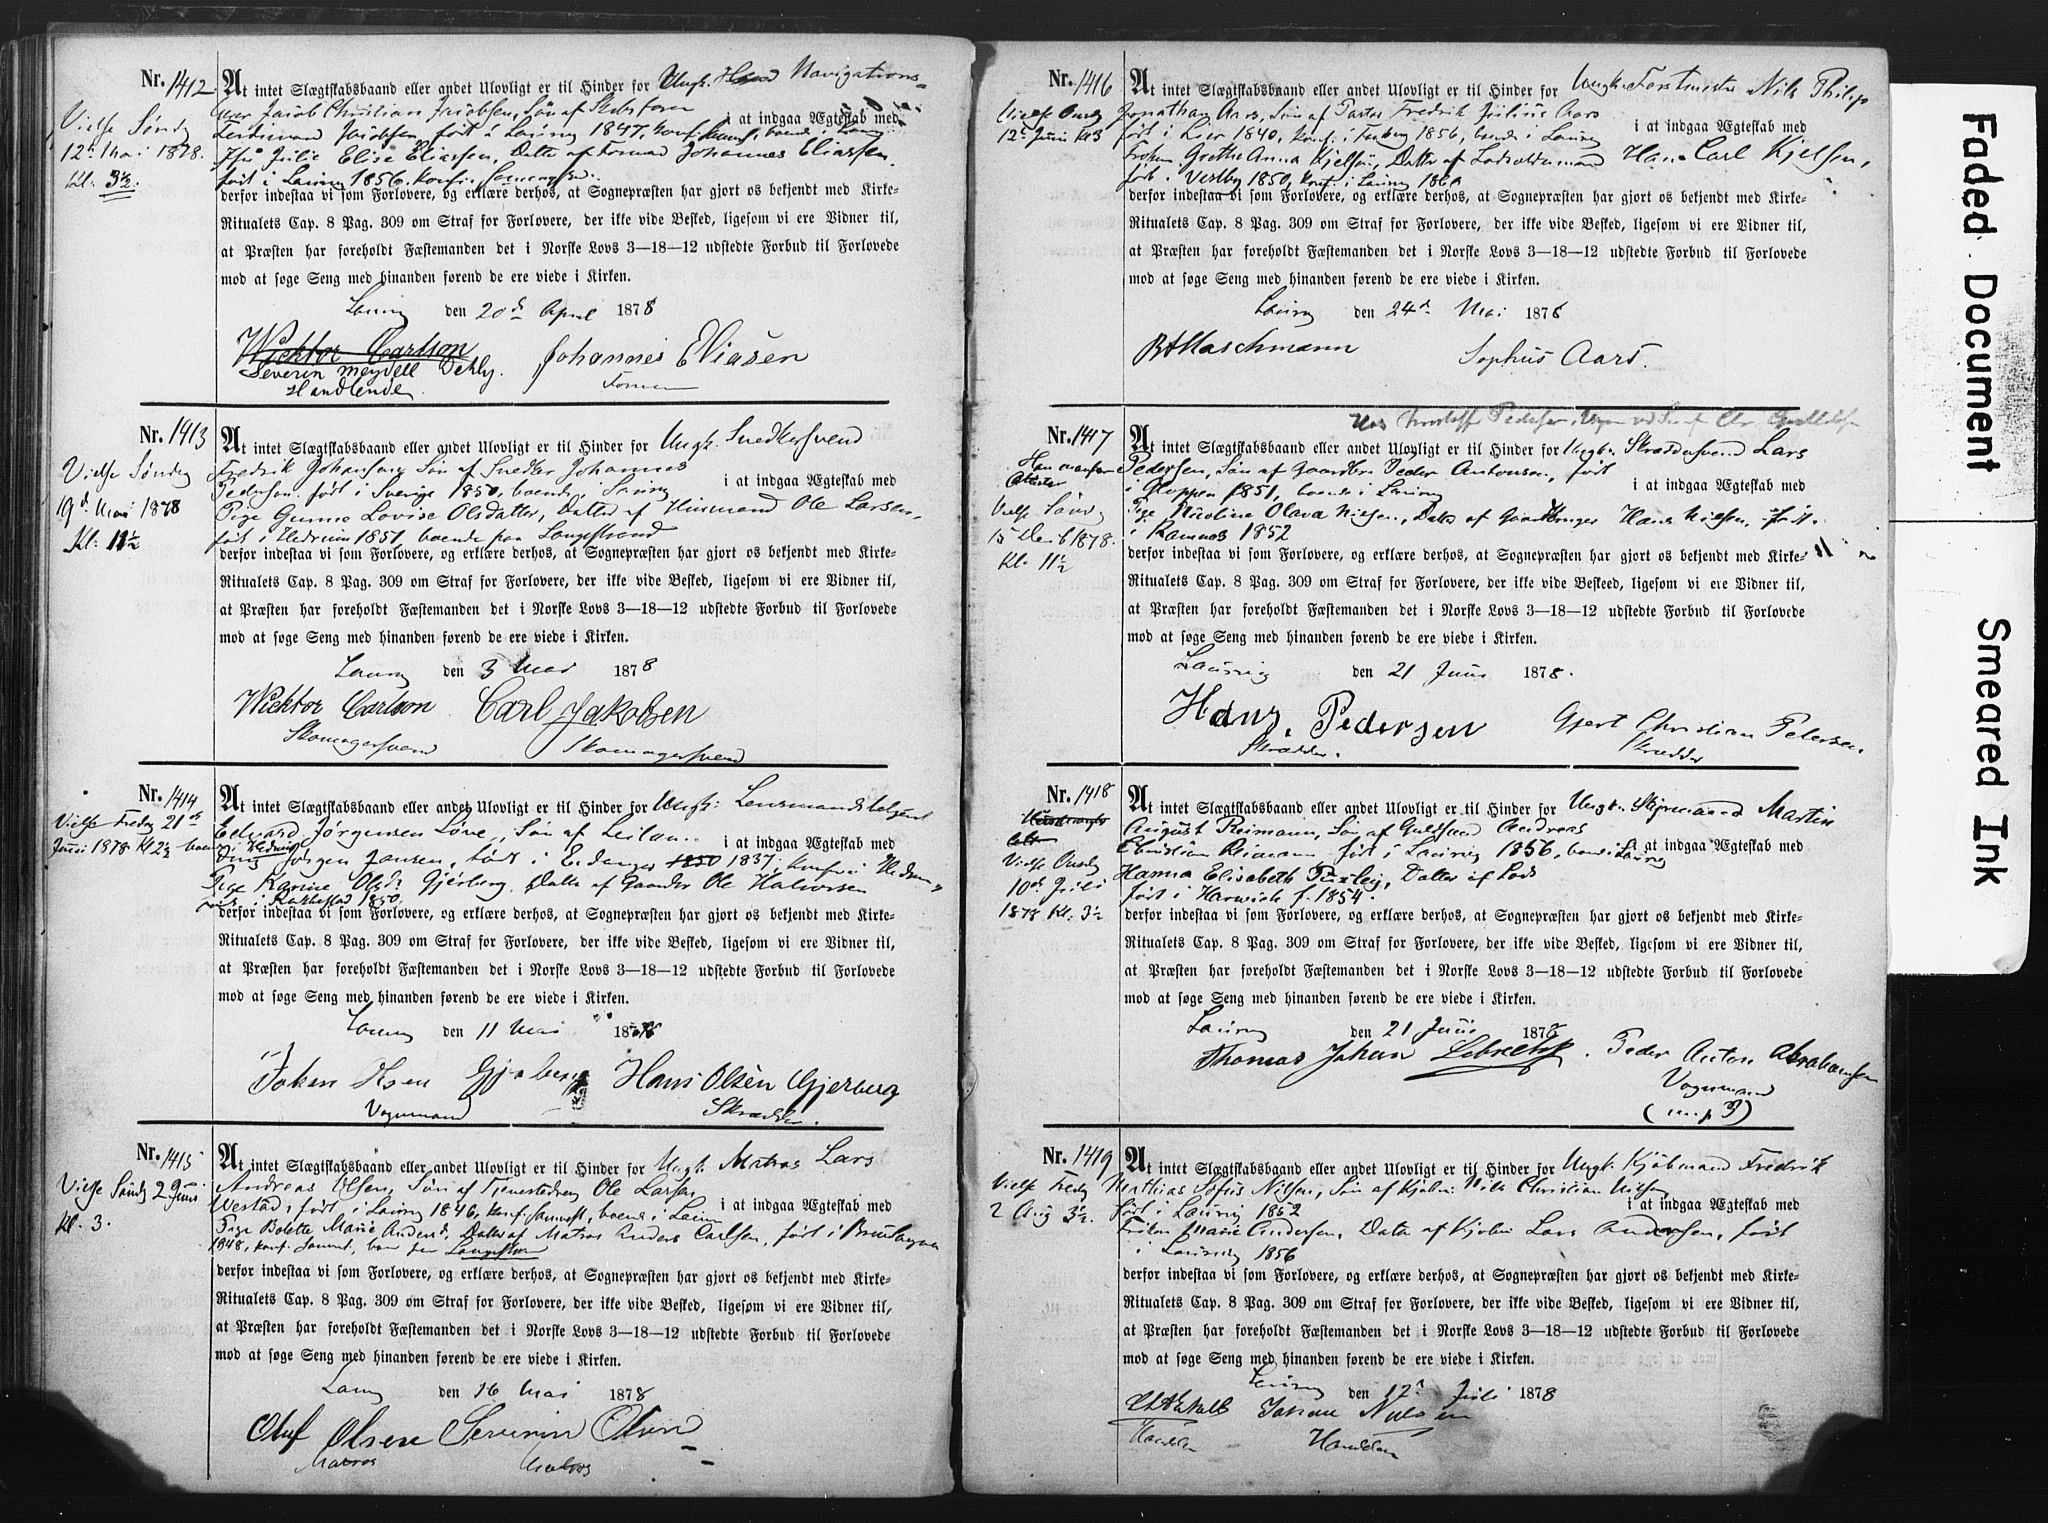 Nr. 1412
Vielse Søndg
12te Mai 1878.
Kl. 3½.
At intet Slægtskabsbaand eller andet Ulovligt er til Hinder for Ungk. Navigations-
Jacob Christian Jacobsen, Søn af
Ferdinand Jacobsen, født i Laurvig 1847, konf. boende i Laurvig
i at indgaa Ægteskab med
Julie Elise Eliassen, Datter af Formand Johannes Eliassen,
født i Laurvig 1856, konf.
derfor indestaa vi som Forlovere, og erklære derhos, at Sognepræsten har gjort os bekjendt med Kirke-
Ritualets Cap. 8 Pag. 309 om Straf for Forlovere, der ikke vide Besked, ligesom vi ere Vidner til,
at Præsten har foreholdt Fæstemanden det i Norske Lovs 3—18—12 udstedte Forbud til Forlovede
mod at søge Seng med hinanden førend de ere viede i Kirken.
Laurvig den 20de April 1878
Wicktor Carlson Johannes Eliasen
Severin Meydell Dehly. Formand
Handlende
Nr. 1413
Vielse Søndag
19de Mai 1878
Kl. 11½
At intet Slægtskabsbaand eller andet Ulovligt er til Hinder for Ungk. Snedkersvend
Fredrik Johanson, Søn af Snedker Johannes
Pederson, født i Sverige 1850, boende i Laurvig i at indgaa Ægteskab med
Pige Gunne Lovise Olsdatter, Datter af Husmand Ole Larsen,
født i Hedrum 1851, boende paa Langestrand
derfor indestaa vi som Forlovere, og erklære derhos, at Sognepræsten har gjort os bekjendt med Kirke-
Ritualets Cap. 8 Pag. 309 om Straf for Forlovere, der ikke vide Besked, ligesom vi ere Vidner til,
at Præsten har foreholdt Fæstemanden det i Norske Lovs 3—18—12 udstedte Forbud til Forlovede
mod at søge Seng med hinanden førend de ere viede i Kirken.
Laurvig den 3 Mai 1878
Wicktor Carlson Carl Jakobsen
Skomagersvend Skomagersvend
Nr. 1414
Vielse Fredag 21de
Juni 1878 Kl 2½
At intet Slægtskabsbaand eller andet Ulovligt er til Hinder for Ungk. Lensmandsbetjent
Edvard Jørgensen Løve, Søn af
boende i Hedrum i at indgaa Ægteskab med
Jørgen Jansen, født i Eidanger 1850 1837, konf. i Hedrum,
Pige Karine Olsdr Gjerberg, Datter af Gaardbr Ole Halvorsen
født i Kokkestad 1850.
derfor indestaa vi som Forlovere, og erklære derhos, at Sognepræsten har gjort os bekjendt med Kirke-
Ritualets Cap. 8 Pag. 309 om Straf for Forlovere, der ikke vide Besked, ligesom vi ere Vidner til,
at Præsten har foreholdt Fæstemanden det i Norske Lovs 3—18—12 udstedte Forbud til Forlovede
mod at søge Seng med hinanden førend de ere viede i Kirken.
Laurvig den 11 Mai 1878
Johan Olsen Gjerberg Hans Olsen Gjerberg
Vognmand Skrædder.
Nr. 1415
Vielse Søndg 2 Juni
Kl. 3.
At intet Slægtskabsbaand eller andet Ulovligt er til Hinder for Ungk. Matros Lars
Andreas Olsen, Søn af Tjenestedreng Ole Larsen
Westad, født i Laurvig 1846, konf. sammest., boende i Laurvig i at indgaa Ægteskab med
Pige Bolette Marie Andersd, Datter af Matros Anders Carlsen, født i Brunlagnæs
1848, konf. sammst, boen paa Langestran
derfor indestaa vi som Forlovere, og erklære derhos, at Sognepræsten har gjort os bekjendt med Kirke-
Ritualets Cap. 8 Pag. 309 om Straf for Forlovere, der ikke vide Besked, ligesom vi ere Vidner til,
at Præsten har foreholdt Fæstemanden det i Norske Lovs 3—18—12 udstedte Forbud til Forlovede
mod at søge Seng med hinanden førend de ere viede i Kirken.
Laurvig den 16 Mai 1878
Oluf Olsen Severin Olsen
Matros Matros
Nr. 1416
Vielse Onsdg
12te Juni Kl 3
At intet Slægtskabsbaand eller andet Ulovligt er til Hinder for Ungk. Forstmester Nils Philip
Jonathan Aars, Søn af Pastor Fredrik Julius Aars
født i Lier 1840, konf. i 1856, boende i Laurvig i at indgaa Ægteskab med
Frøken Grethe Anna Kjelsen, Datter af Lodsoldermand Hans Carl Kjelsen,
født i Vestby 1850, konf. i Laurvig
derfor indestaa vi som Forlovere, og erklære derhos, at Sognepræsten har gjort os bekjendt med Kirke-
Ritualets Cap. 8 Pag. 309 om Straf for Forlovere, der ikke vide Besked, ligesom vi ere Vidner til,
at Præsten har foreholdt Fæstemanden det i Norske Lovs 3—18—12 udstedte Forbud til Forlovede
mod at søge Seng med hinanden førend de ere viede i Kirken.
Laurvig den 24de Mai 1878
Maschmann Sophus Aars.
Nr. 1417
Han mangler
Attester
Vielse Søndg
15 Decb 1878.
Kl. 11½
At intet Slægtskabsbaand eller andet Ulovligt er til Hinder for Ungk. Skræddersvend Lars
Pedersen, Søn af Gaardbr Peder Antonsen, født
i Gloppen 1851, boende i Laurvig i at indgaa Ægteskab med
Pige Nicoline Olava Nielsen, Datter af Gaardbruger Hans Nielsen, født
i Ramnæs 1852
derfor indestaa vi som Forlovere, og erklære derhos, at Sognepræsten har gjort os bekjendt med Kirke-
Ritualets Cap. 8 Pag. 309 om Straf for Forlovere, der ikke vide Beskeed, ligesom vi ere Vidner til,
at Præsten har foreholdt Fæstemanden det i Norske Lovs 3—18—12 udstedte Forbud til Forlovede
mod at søge Seng med hinanden førend de ere viede i Kirken.
Laurvig den 21 Juni 1878.
Hans Pedersen Gjert Christian Petersen.
Skrædder. Skrædder
Nr. 1418
Vielse Onsdg
10de Juli
1878 Kl. 3½
At intet Slægtskabsbaand eller andet Ulovligt er til Hinder for Ungk. Styrmand Martin
August Reimann, Søn af Guldsmed Andreas
Christian Reimann, født i Laurvig 1856, boende i Laurvig i at indgaa Ægteskab med
Hanna Elisabeth Puxley, Datter af Lods
født i Harwich f. 1854.
derfor indestaa vi som Forlovere, og erklære derhos, at Sognepræsten har gjort os bekjendt med Kirke-
Ritualets Cap. 8 Pag. 309 om Straf for Forlovere, der ikke vide Besked, ligesom vi ere Vidner til,
at Præsten har foreholdt Fæstemanden det i Norske Lovs 3—18—12 udstedte Forbud til Forlovede
mod at søge Seng med hinanden førend de ere viede i Kirken.
Laurvig den 21 Juni 1878
Thomas Johan Peder Anton Abrahamsen
Vognmand
(m. p. P)
Nr. 1419
Vielse Fredg
2 Aug 3½.
At intet Slægtskabsbaand eller andet Ulovligt er til Hinder for Ungk. Kjøbmand Fredrik
Mathias Sofus Nilsen, Søn af Kjøbm. Nils Christian Nilsen
født i Laurvig 1852 i at indgaa Ægteskab med
Frøken Marie Andersen, Datter af Kjøbm Lars Andersen, født
i Laurvig 1856
derfor indestaa vi som Forlovere, og erklære derhos, at Sognepræsten har gjort os bekjendt med Kirke-
Ritualets Cap. 8 Pag. 309 om Straf for Forlovere, der ikke vide Besked, ligesom vi ere Vidner til,
at Præsten har foreholdt Fæstemanden det i Norske Lovs 3—18—12 udstedte Forbud til Forlovede
mod at søge Seng med hinanden førend de ere viede i Kirken.
Laurvig den 17de Juli 1878
Johan Nielsen
Handlen Handlen
Faded Document
Smeared Ink